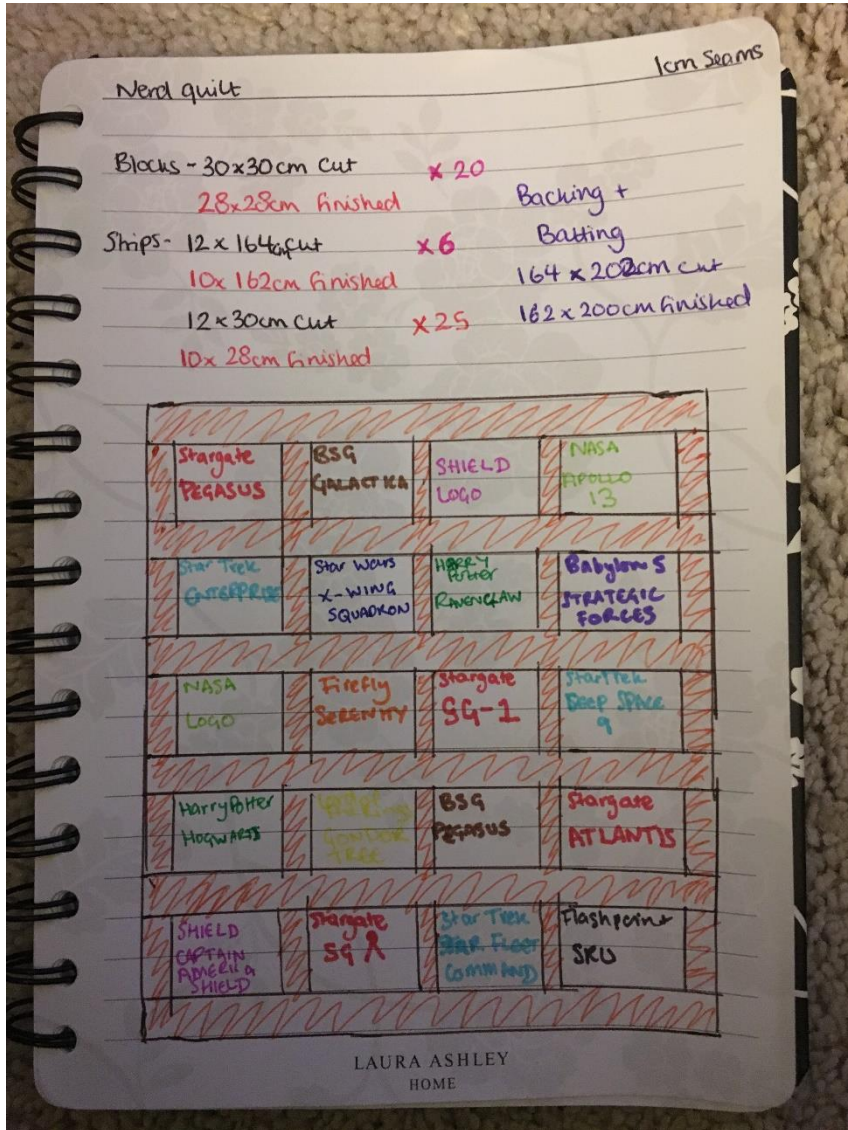 Nerd quilt
1cm Seams
Blocks - 30x30cm cut x 20
28x28cm finished
Strips - 12 x 164cm cut x6
10x 162cm finished
12x30cm cut x25
10x 28cm finished
Backing +
Batting
164 x 202cm cut
162 x 200cm finished
Stargate
PEGASUS
BSG
GALACTICA
SHIELD
LOGO
NASA
APOLLO
13
Star Trek
ENTERPRISE
Star Wars
X-WING
SQUADRON
HARRY
Potter
RAVENCLAW
Babylon 5
STRATEGIC
FORCES
NASA
LOGO
Firefly
SERENITY
Stargate
SG-1
Star Trek
DEEP SPACE
9
Harry Potter
HOGWARTS
GONDOR
TREE
BSG
PEGASUS
Stargate
ATLANTIS
SHIELD
CAPTAIN
AMERICA
SHIELD
Stargate
SG
Star Trek
STAR FLEET
COMMAND
Flashpoint
SRU
LAURA ASHLEY
HOME